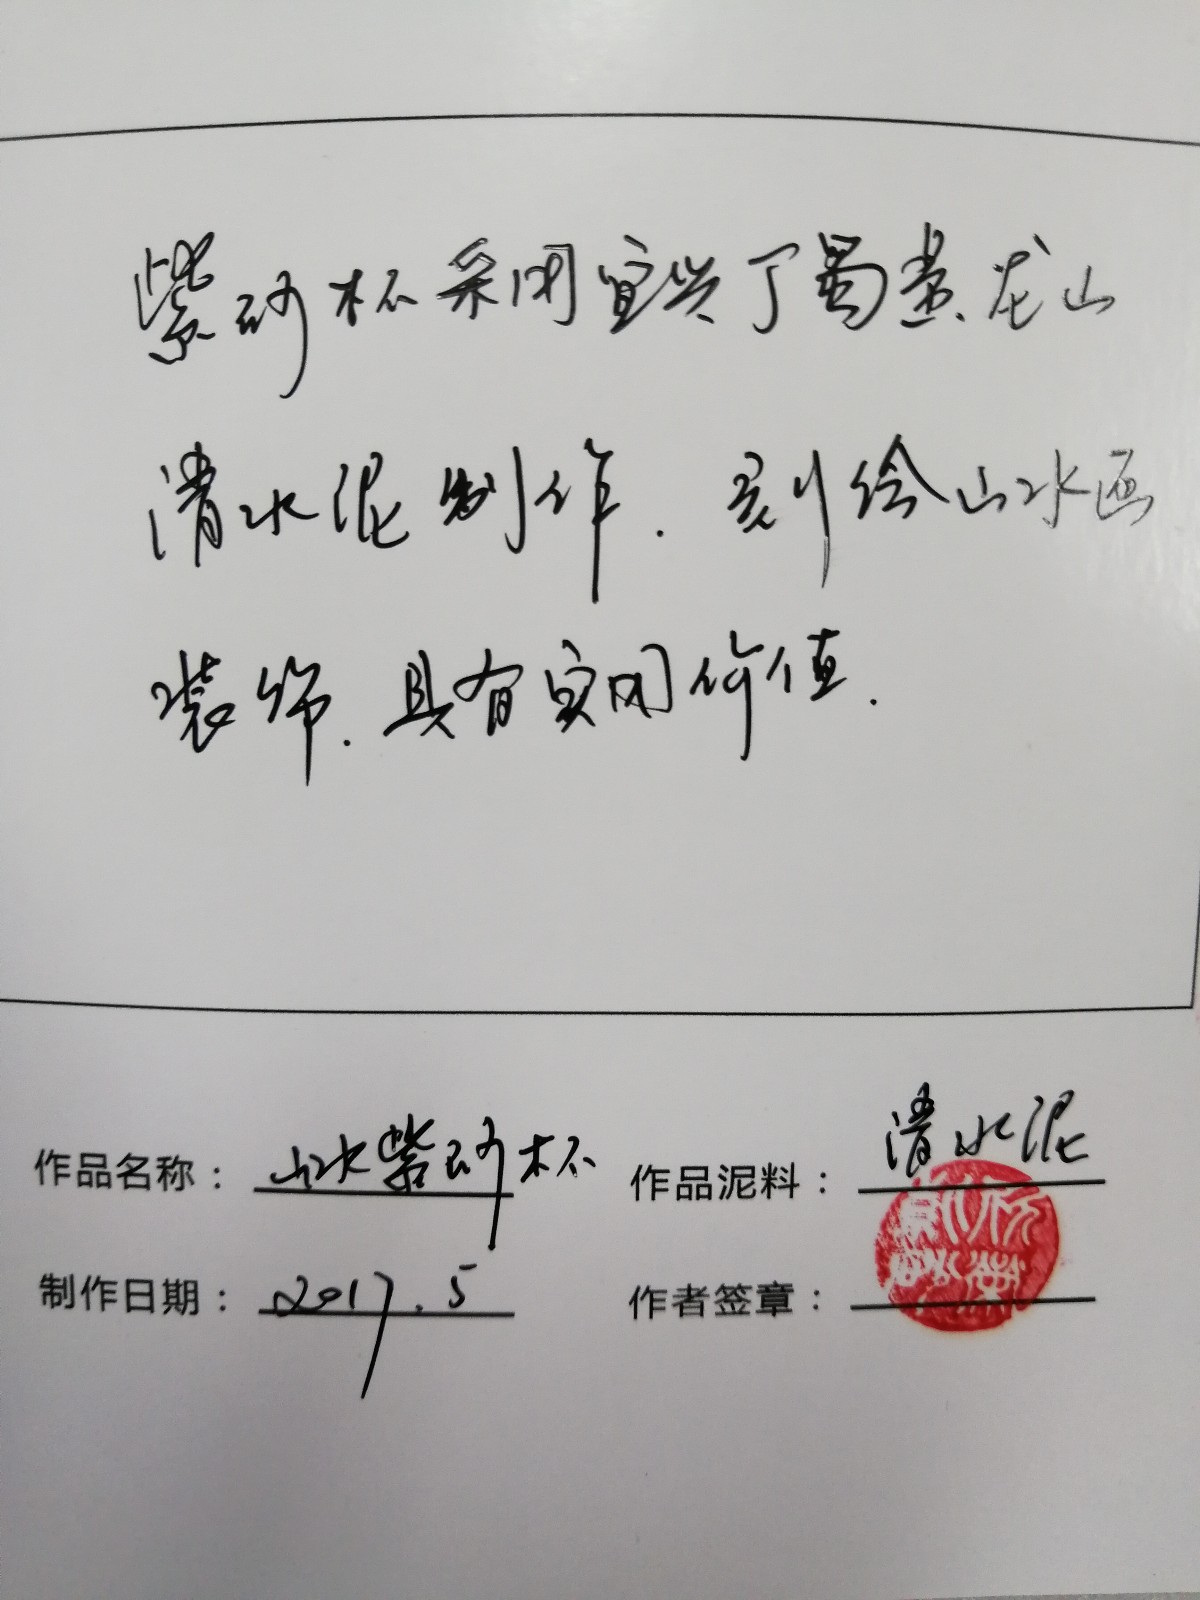 紫砂杯采用宜兴丁蜀黄龙山
清水泥制作.刻绘山水画
装饰.具有实用价值.
作品名称：山水紫砂杯 作品泥料：清水泥
制作日期：2017.5 作者签章：